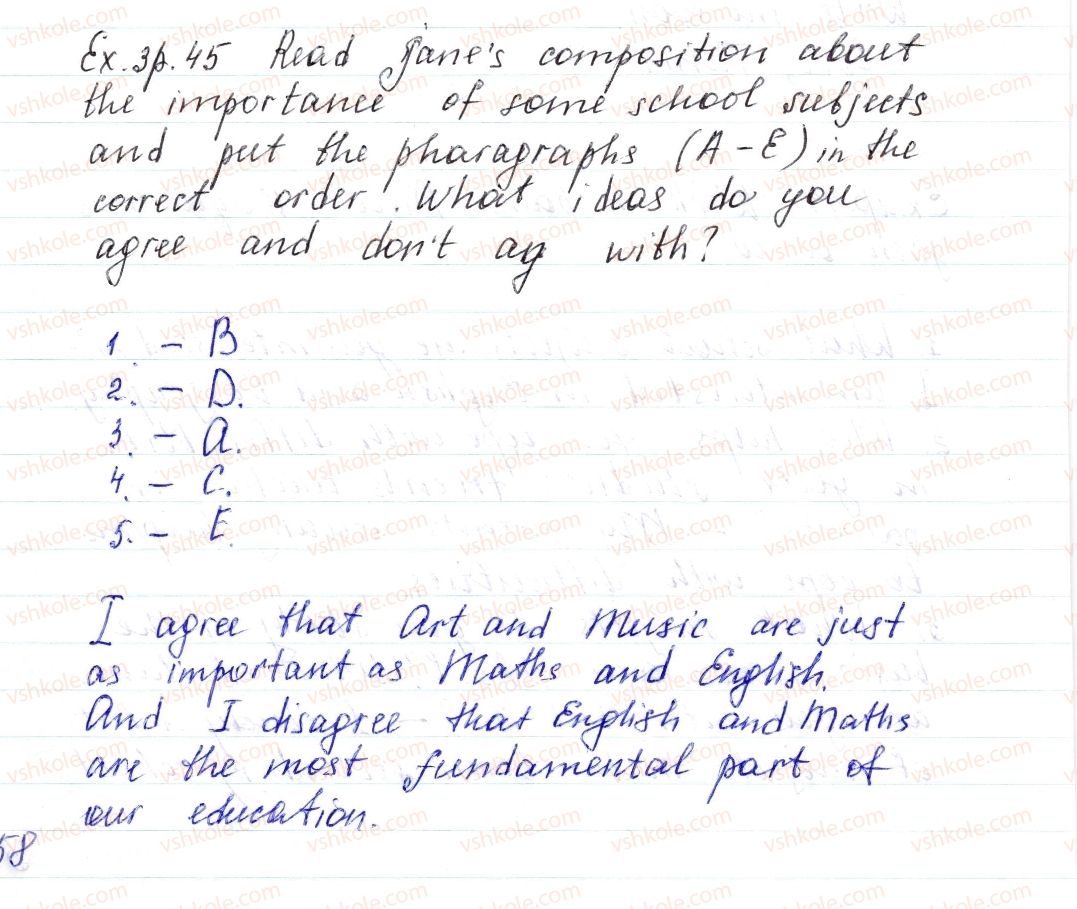 Ex. 3p. 45 Read Jane's composition about
the importance of some school subjects
and put the pharagraphs (A-E) in the
correct order. What ideas do you
agree and don't ag with?
1. - B
2. - D.
3. - A.
4. - C.
5. - E.
I agree that Art and Music are just
as important as Maths and English.
And I disagree that English and Maths
are the most fundamental part of
our education.
58
vshkole.com